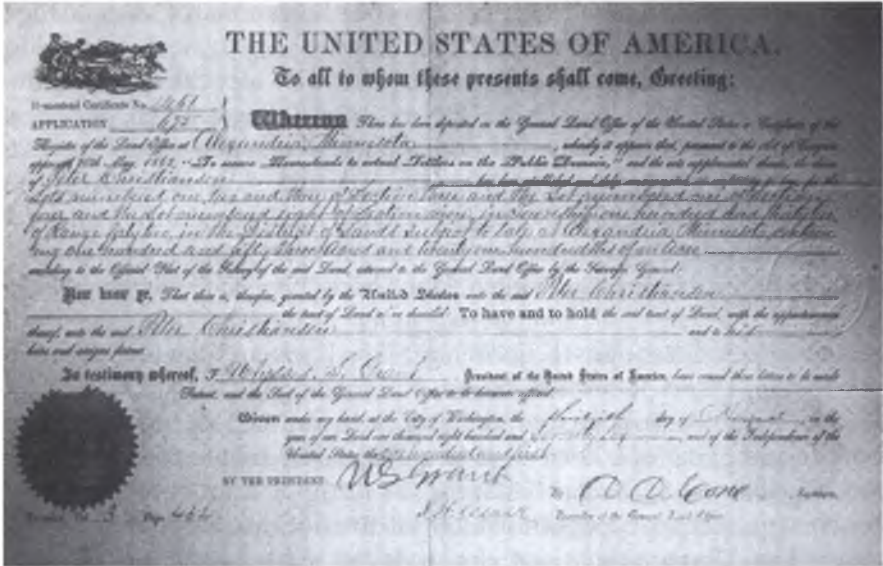 THE UNITED STATES OF AMERICA.
To all to whom these presents shall come, Greeting:
Homestead Certificate No. 1461
APPLICATION 672
Whereas There has been deposited in the General Land Office of the United States a Certificate of the
Register of the Land Office at Alexandria, Minnesota, whereby it appears that, pursuant to the Act of Congress
approved 20th May, 1862, "To secure Homesteads to actual Settlers on the Public Domain," and the acts supplemental thereto, the claim
of Peter Christianson has been established and duly consummated in conformity to law for the
Lots numbered one, two and three of Section and the Lot numbered one of Section
four and the Lot numbered eight of Section in Township one hundred and thirty
of Range forty two in the District of Lands subject to sale at Alexandria Minnesota contain
ing one hundred and fifty three acres and twenty one hundredths of an acre
according to the Official Plat of the Survey of the said Land, returned to the General Land Office by the Surveyor General:
Now know ye, That there is, therefore, granted by the United States unto the said Peter Christianson
the tract of Land above described: To have and to hold the said tract of Land, with the appurtenances
thereof, unto the said Peter Christianson and to his
heirs and assigns forever.
In testimony whereof, I Ulysses S. Grant, President of the United States of America, have caused these letters to be made
Patent, and the Seal of the General Land Office to be hereunto affixed.
Given under my hand, at the City of Washington, the day of August, in the
year of our Lord one thousand eight hundred and Seventy, and of the Independence of the
United States the
BY THE PRESIDENT: U. S. Grant
By D. D. Cone, Secretary.
Recorder of the General Land Office.
Recorded, Vol. 3 Page 464